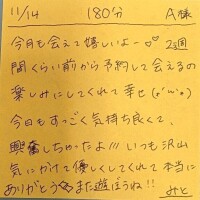 11/14 180分 A様
今月も会えて嬉しいよー♡♡ 2週
間くらい前から予約して会えるの
楽しみにしてくれて幸せ(,,・ω・,,)
今日もすごく気持ち良くて、
興奮しちゃったよ!!! いつも沢山
気にかけて優しくしてくれて本当に
ありがとう また遊ぼうね!!
みと